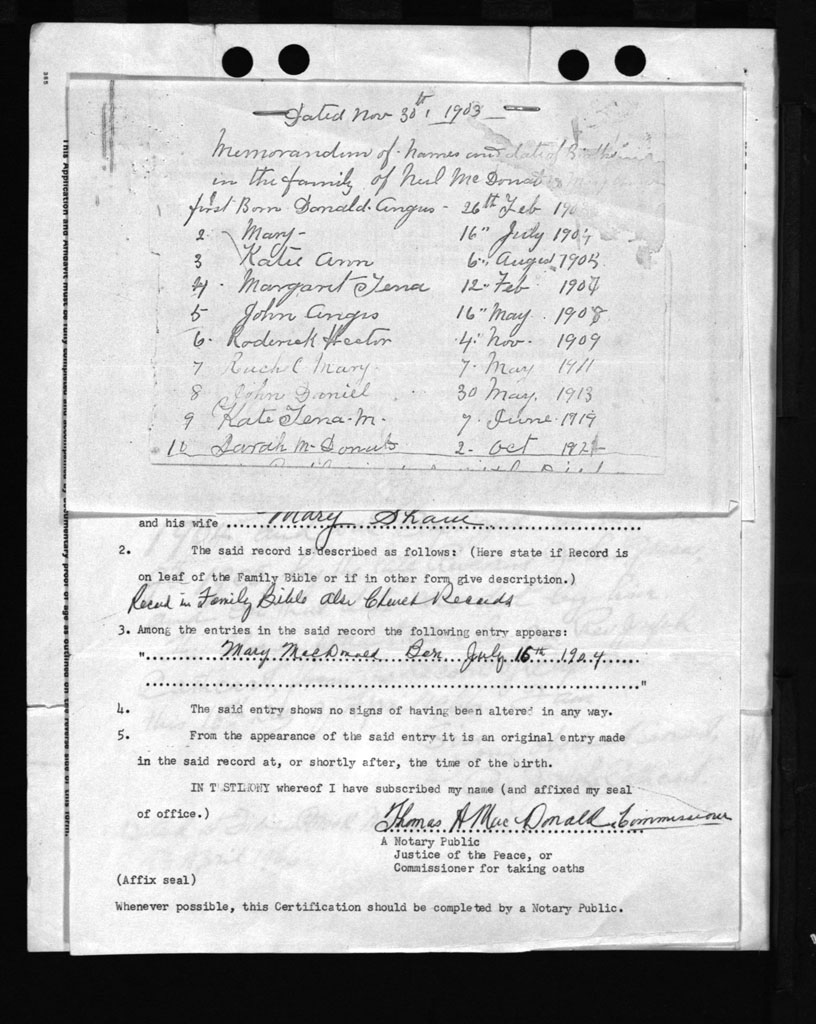 Dated Nov 30th, 1903
Memorandum of names and date of Births
in the family of Neil McDonald
first Born Donald Angus - 26th Feb 190
2 Mary - 16" July 1904
3 Katie Ann 6" August 1905
4 Margaret Tena 12" Feb 1907
5 John Angus 16" May 1908
6 Roderick Hector 4" Nov. 1909
7 Rachel Mary 7. May 1911
8 John Daniel 30 May. 1913
9 Kate Tena M. 7. June 1919
10 Sarah 2. Oct 1921
and his wife Mary Shaw
2. The said record is described as follows: (Here state if Record is
on leaf of the Family Bible or if in other form give description.)
Record in Family Bible also Church Records
3. Among the entries in the said record the following entry appears:
" Mary MacDonald Born July 16th 1904
"
4. The said entry shows no signs of having been altered in any way.
5. From the appearance of the said entry it is an original entry made
in the said record at, or shortly after, the time of the birth.
IN TESTIMONY whereof I have subscribed my name (and affixed my seal
of office.)
Thomas A MacDonald Commissioner
A Notary Public
Justice of the Peace, or
Commissioner for taking oaths
(Affix seal)
Whenever possible, this Certification should be completed by a Notary Public.